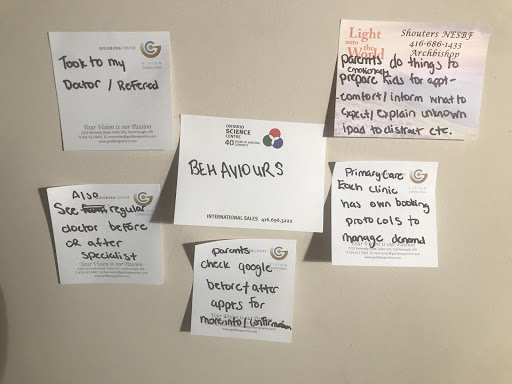 GOLDBERG CENTRE
VISION
CORRECTION
Took to my
Doctor / Refered
Your Vision is our Passion
Light
unto the
World
Shouters NESBF
416-686-1433
Archbishop
parents do things to
emotionally
prepare kids for appt-
comfort/inform what to
expect/explain unknown
ipad to distract etc.
ONTARIO
SCIENCE
CENTRE
40
BEHAVIOURS
INTERNATIONAL SALES 416.696.3222
Also
See regular
doctor before
OR after
specialist
Your Vision is our Passion
Primary Care
Each clinic
has own booking
protocols to
manage demand
Your Vision is our Passion
parents
check google
before/after
appts for
more info/confirmation